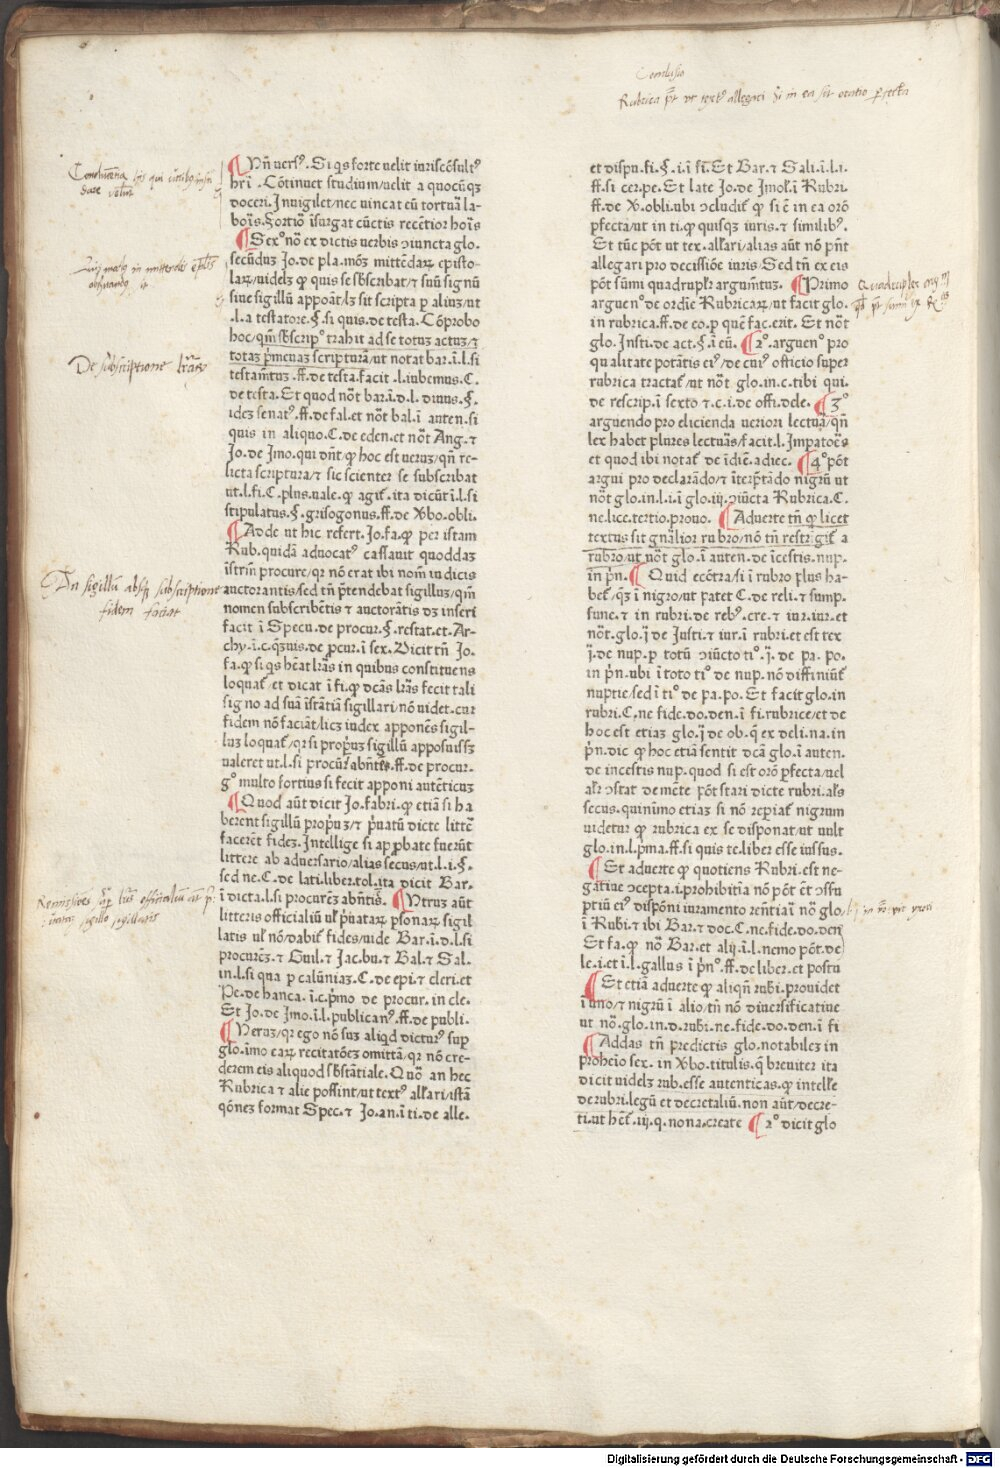 Conclusio
Rubrica pōt ut textꝰ allegari
¶ Vñ uersꝰ. Si qs forte uelit iuriscōsultꝰ
hr̄i . Cōtinuet studium/uelit a quocūqꝫ
doceri. Inuigilet/nec uincat eū tortuā la-
bor̄is. Fortiō īsurgat cūctis recētior hor̄is
¶ Sexꝰ nō ex dictis uerbis ↄiuncta glo.
secūduꝫ Jo. de pla. mōꝫ mittēdaꝝ epīsto-
laꝝ/uidelꝫ ꝙ quis se sb̄scribat/⁊ suū signū
siue sigillū appoāt/lꝫ sit scripta p̱ alium/ut
.l.a testatore.§. si quis.de testa. Cōprobo
hoc/qm̄ sb̄scrip° trahit ad se totuꝫ actuꝫ/⁊
totaꝫ p̄meuaꝫ scripturā/ut notat bar.ī.l.si
testam̄tuꝫ.ff.de testa.facit .l.iubemus.C.
de testa. Et quod nōt bar.ī.d.l. diuus.§.
ideꝫ senatꝰ.ff.de fal.et nōt bal.ī auten.si
quis in aliquo.C.de eden.et nōt Ang.⁊
Jo.de Jmo.qui dn̄t ꝙ hoc est ueruꝫ/qn̄ re-
licta scriptura/⁊ sic scienter se subscribat
ut.l.fi.C.plus.uale.ꝙ agit̃.ita dicūt ī.l.si
stipulatus.§.grisogonus.ff.de v̄bo.obli.
¶ Adde ut hic refert.Jo.fa.ꝙ per istam
Rub.quidā aduocatꝰ cassauit quoddaꝫ
īstrm̄ procure/qꝛ nō erat ibi nom̄ iudicis
auctorantis/sed tn̄ p̄tendebat sigilluꝫ/qm̄
nomen subscribētis ⁊ auctorātis dꝫ inseri
facit ī Specu.de procur.§.restat.et.Ar-
chy.ī.c.qꝫuis.de p̱cur.ī sex. Dicit tn̄ Jo.
fa.ꝙ si qs hēat lr̄as in quibus constituens
loquat̃/et dicat ī fi.ꝙ dcās lr̄as fecit tali
signo ad suā īstātiā sigillari/nō uidet̃.cur
fidem nō faciāt/licꝫ iudex apponēs sigil-
luꝫ loquat̃/qꝛ si propꝛuꝫ sigillū apposuissꝫ
ualeret ut.l.si procur̄ abn̄tis.ff.de procur.
g° multo fortius si fecit apponi autēticuꝫ
¶ Quod aūt dicit Jo.fabri.ꝙ etiā si ha
berent sigillū propꝛuꝫ/⁊ p̄uatū dicte litter̄
facerēt fideꝫ. Intellige si approbate fuerūt
littere ab aduersario/alias secus/ut.l.i.§.
sed ne.C. de lati.liber.tol.ita dicit Bar.
ī dicta.l.si procureꝫ abn̄tis. ¶ Vtruꝫ aūt
litteris officialiū ul̄ p̄uataꝝ p̱sonaꝝ sigil
latis ul̄ nō/dabit̃ fides/uide Bar.ī.d.l.si
procureꝫ.⁊ Guil.⁊ Jac.bu.⁊ Bal.⁊ Sal.
in.l.si qua p̱ calūniaꝫ.C.de epi.⁊ cleri.et
Pe.de hanca.ī.c.p̄mo de procur.in cle.
Et Jo.de Jmo.ī.l.publicanꝰ.ff.de publi.
¶ Veruꝫ/qꝛ ego nō suꝫ aliqd dicturꝰ sup̱
glo.īmo eaꝝ recitatōeꝫ omittā/qꝛ nō cre-
derem eis aliquod sb̄stātiale. Quō an hec
Rubrica ⁊ alie possint/ut textꝰ allr̄ari/istā
qōneꝫ format Spec.⁊ Jo.an.ī ti.de alle.
De subscriptione lr̄arꝫ
An sigillū absqꝫ subscriptione
fidem faciat
et dispu.fi.§.i.ī fi. Et Bar.⁊ Sali.ī.l.i.
ff.si cer.pe. Et late Jo.de Jmol̄.ī Rubri.
ff.de V.obli.ubi ↄcludit̃ ꝙ si ē in ea orō
p̱fecta/ut in ti.ꝙ quisqꝫ iuris.⁊ similibꝰ.
Et tūc pōt ut tex.allr̄ari/alias aūt nō pn̄t
allegari pro decissiōe iuris. Sed tn̄ ex eis
pōt sūmi quadruplꝛ argum̄tuꝫ. ¶ Primo
arguen° de ordīe Rubricaꝝ/ut facit glo.
in rubrica.ff.de eo.p̱ quē fac.erit. Et nōt
glo. Insti.de act.§.ā eū. ¶ 2°.arguen° pro
qualitate potātis eiꝰ/de cuiꝰ officio super
rubrica tractat̃/ut nōt glo.in.c.tibi qui.
de rescrip.ī sexto ⁊.c.i.de offi.dele. ¶ 3°
arguendo pro elicienda ueriori lectuā/qn̄
lex habet plures lectuās/facit.l. Impatoēs
et quod ibi notat̃ de īdiē.adiec. ¶ 4° pōt
argui pro declarādo/⁊ īterp̄tādo nigrū ut
nōt glo.in.l.i.ī glo.iij.ↄiūcta Rubrica.C.
ne.lice.tertio.prouo. ¶ Aduerte tn̄ ꝙ licet
textus sit gnālior rubro/nō tn̄ restrīgit̃ a
rubro/ut nōt glo.ī auten.de īcestis.nup.
in p̄n. ¶ Quid ecōtra/si ī rubro plus ha-
bet̃/qꝫ ī nigro/ut patet C.de reli.⁊ sump.
fune.⁊ in rubri.de rebꝰ.cre.⁊ iur.iur.et
nōt.glo.ij.de Iusti.⁊ iur.ī rubri.et est tex
ij.de nup.p̱ totū ↄiūcto ti°.ij.de pa.po.
in p̄n.ubi ī toto ti° de nup.nō diffiniūt̃
nuptie/sed ī ti° de pa.po. Et facit glo.in
rubri.C.ne fide.do.den.ī fi.rubrice/et de
hoc est etiaꝫ glo.ij.de ob.q̄ ex deli.na.in
p̄n.dic ꝙ hoc etiā sentit dcā glo.ī auten.
de incestis nup.quod si est orō p̱fecta/uel
alr̄ ↄstat de mēte pōt stari dicte rubri.al̄s
secus.quinimo etiaꝫ si nō repiat̃ nigrum
uidetur ꝙ rubrica ex se disponat/ut uult
glo.in.l.pma.ff.si quis te.liber esse iussus.
¶ Et aduerte ꝙ quotiens Rubri.est ne-
gatiue ↄcepta.i.prohibitīa nō pōt ēt ↄssu
p̱tiū eiꝰ dispōni iuramento rēntiaī nō glo
ī Rubi.⁊ ibi Bar.⁊ doc.C.ne.fide.do.den
Et fa.ꝙ nō Bar.et alij.ī.l.nemo pōt.de
le.i.et ī.l.gallus ī p̄n°.ff.de liber.et postu
¶ Et etiā aduerte ꝙ aliqn̄ rubi.prouidet
ī uno/⁊ nigrū ī alio/tn̄ nō diuersificatiue
ut nō.glo.in.d.rubri.ne.fide.do.den.ī fi
¶ Addas tn̄ predictis glo.notabileꝫ in
prohemio sex.in V̄bo.titulis.q̄ breuiter ita
dicit uidelꝫ rub.esse autenticas.ꝙ intelle
de rubri.legū et decretaliū.non aūt/decre-
ti.ut hēt̃.iij.q.nona.create ¶ 2° dicit glo
Digitalisierung gefördert durch die Deutsche Forschungsgemeinschaft - DFG